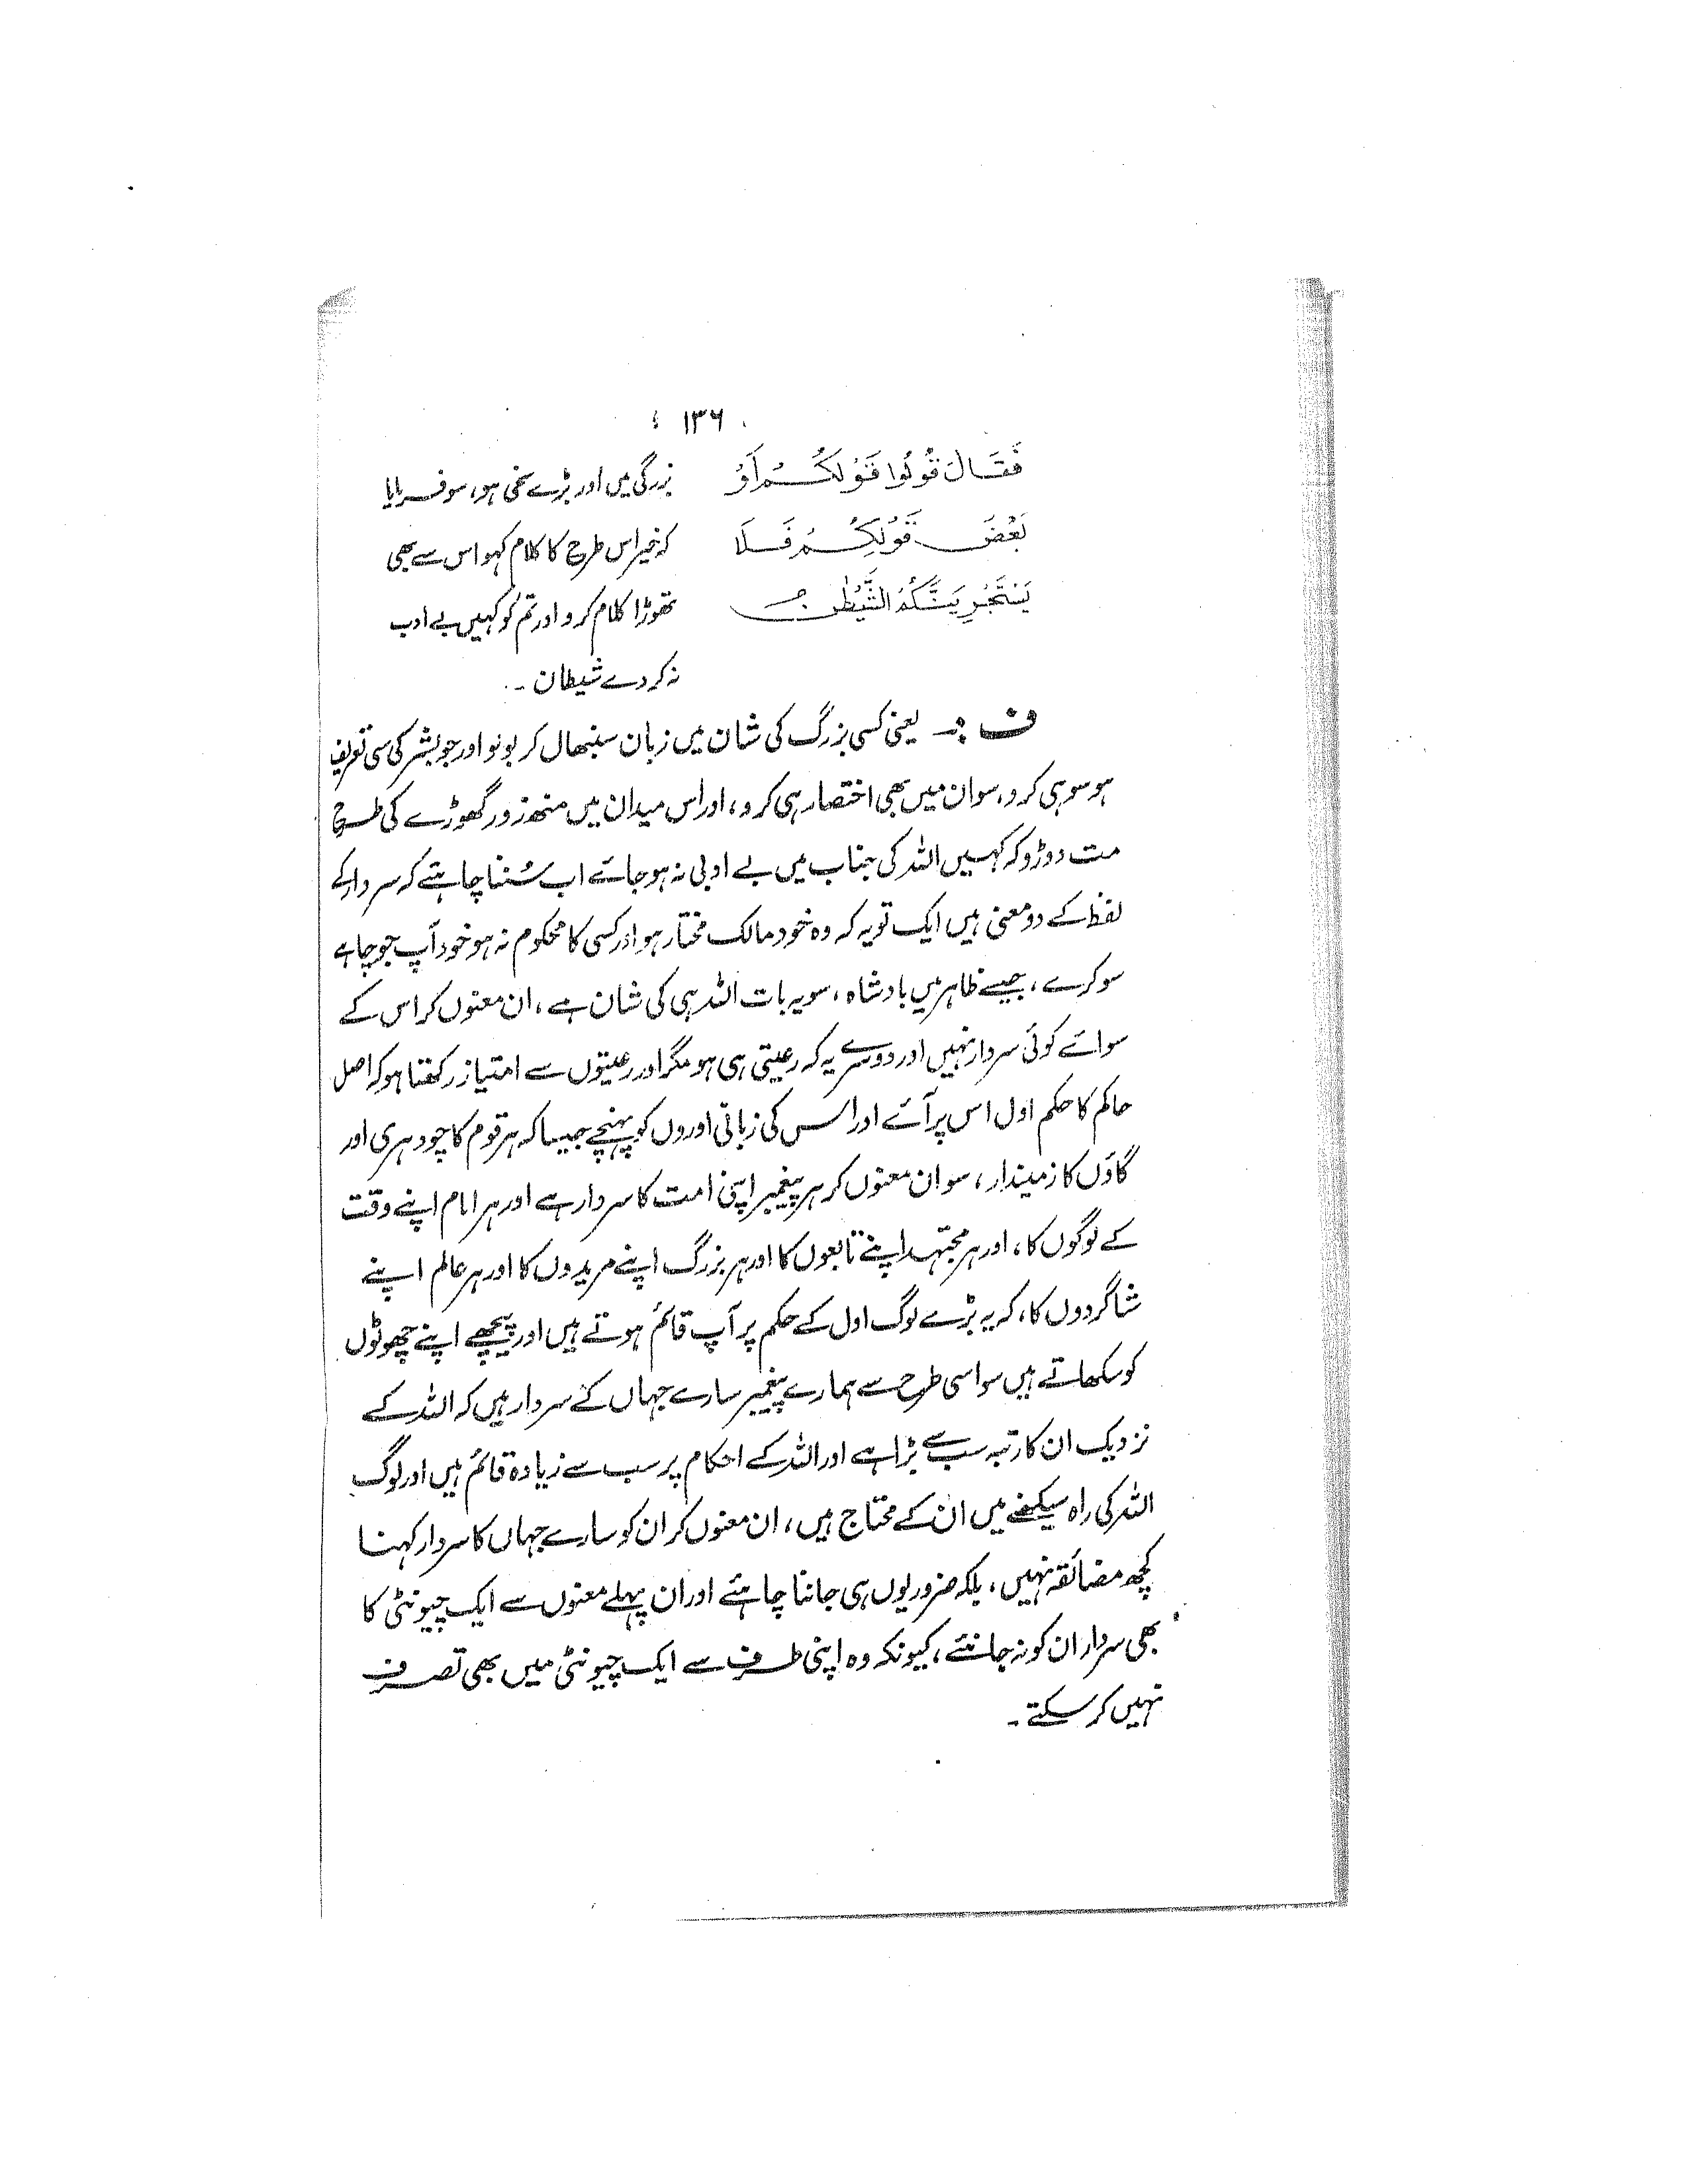 ۱۳۶
فَقَالَ قُوْلُوا قَوْلَكُمْ اَوْ
بَعْضَ قَوْلِكُمْ فَلَا
يَسْتَجْرِيَنَّكُمُ الشَّيْطٰنُ
بزرگی میں اور بڑے سخی ہو، سو فرمایا
کہ خیر اس طرح کا کلام کہو اس سے بھی
تھوڑا کلام کرو اور تم کو کہیں بے ادب
نہ کر دے شیطان ۔
ف :۔ یعنی کسی بزرگ کی شان میں زبان سنبھال کر بولو اور جو بشر کی سی تعریف
ہو سو ہی کرو، سو ان میں بھی اختصار ہی کرو، اور اس میدان میں منھ زور گھوڑے کی طرح
مت دوڑو کہ کہیں اللہ کی جناب میں بے ادبی نہ ہو جائے اب سُننا چاہئے کہ سردار کے
لفظ کے دو معنی ہیں ایک تو یہ کہ وہ خود مالک مختار ہو اور کسی کا محکوم نہ ہو خود آپ جو چاہے
سو کرے، جیسے ظاہر میں بادشاہ، سو یہ بات اللہ ہی کی شان ہے، ان معنوں کر اس کے
سوائے کوئی سردار نہیں اور دوسرے یہ کہ رعیتی ہی ہو مگر اور رعیتوں سے امتیاز رکھتا ہو کہ اصل
حاکم کا حکم اول اس پر آئے اور اس کی زبانی اوروں کو پہنچے جیسا کہ ہر قوم کا چودہری اور
گاؤں کا زمیندار، سو ان معنوں کر ہر پیغمبر اپنی امت کا سردار ہے اور ہر امام اپنے وقت
کے لوگوں کا، اور ہر مجتہد اپنے تابعوں کا اور ہر بزرگ اپنے مریدوں کا اور ہر عالم اپنے
شاگردوں کا، کہ یہ بڑے لوگ اول کے حکم پر آپ قائم ہوتے ہیں اور پیچھے اپنے چھوٹوں
کو سکھاتے ہیں سو اسی طرح سے ہمارے پیغمبر سارے جہاں کے سردار ہیں کہ اللہ کے
نزدیک ان کا رتبہ سب سے بڑا ہے اور اللہ کے احکام پر سب سے زیادہ قائم ہیں اور لوگ
اللہ کی راہ سیکھنے میں ان کے محتاج ہیں، ان معنوں کر ان کو سارے جہاں کا سردار کہنا
کچھ مضائقہ نہیں، بلکہ ضرور یوں ہی جاننا چاہئے اور ان پہلے معنوں سے ایک چیونٹی کا
بھی سردار ان کو نہ جانئے، کیونکہ وہ اپنی طرف سے ایک چیونٹی میں بھی تصرف
نہیں کر سکتے ۔